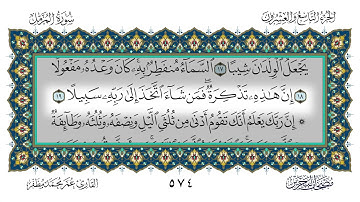 الجزء التاسع والعشرون
سورة المزمل
يَجْعَلُ ٱلْوِلْدَٰنَ شِيبًا ١٧ ٱلسَّمَآءُ مُنفَطِرٌۢ بِهِۦ ۚ كَانَ وَعْدُهُۥ مَفْعُولًا
١٨ إِنَّ هَٰذِهِۦ تَذْكِرَةٌ ۖ فَمَن شَآءَ ٱتَّخَذَ إِلَىٰ رَبِّهِۦ سَبِيلًا ١٩
إِنَّ رَبَّكَ يَعْلَمُ أَنَّكَ تَقُومُ أَدْنَىٰ مِن ثُلُثَىِ ٱلَّيْلِ وَنِصْفَهُۥ وَثُلُثَهُۥ وَطَآئِفَةٌ
القارئ عمر محمد مظفر
٥٧٤